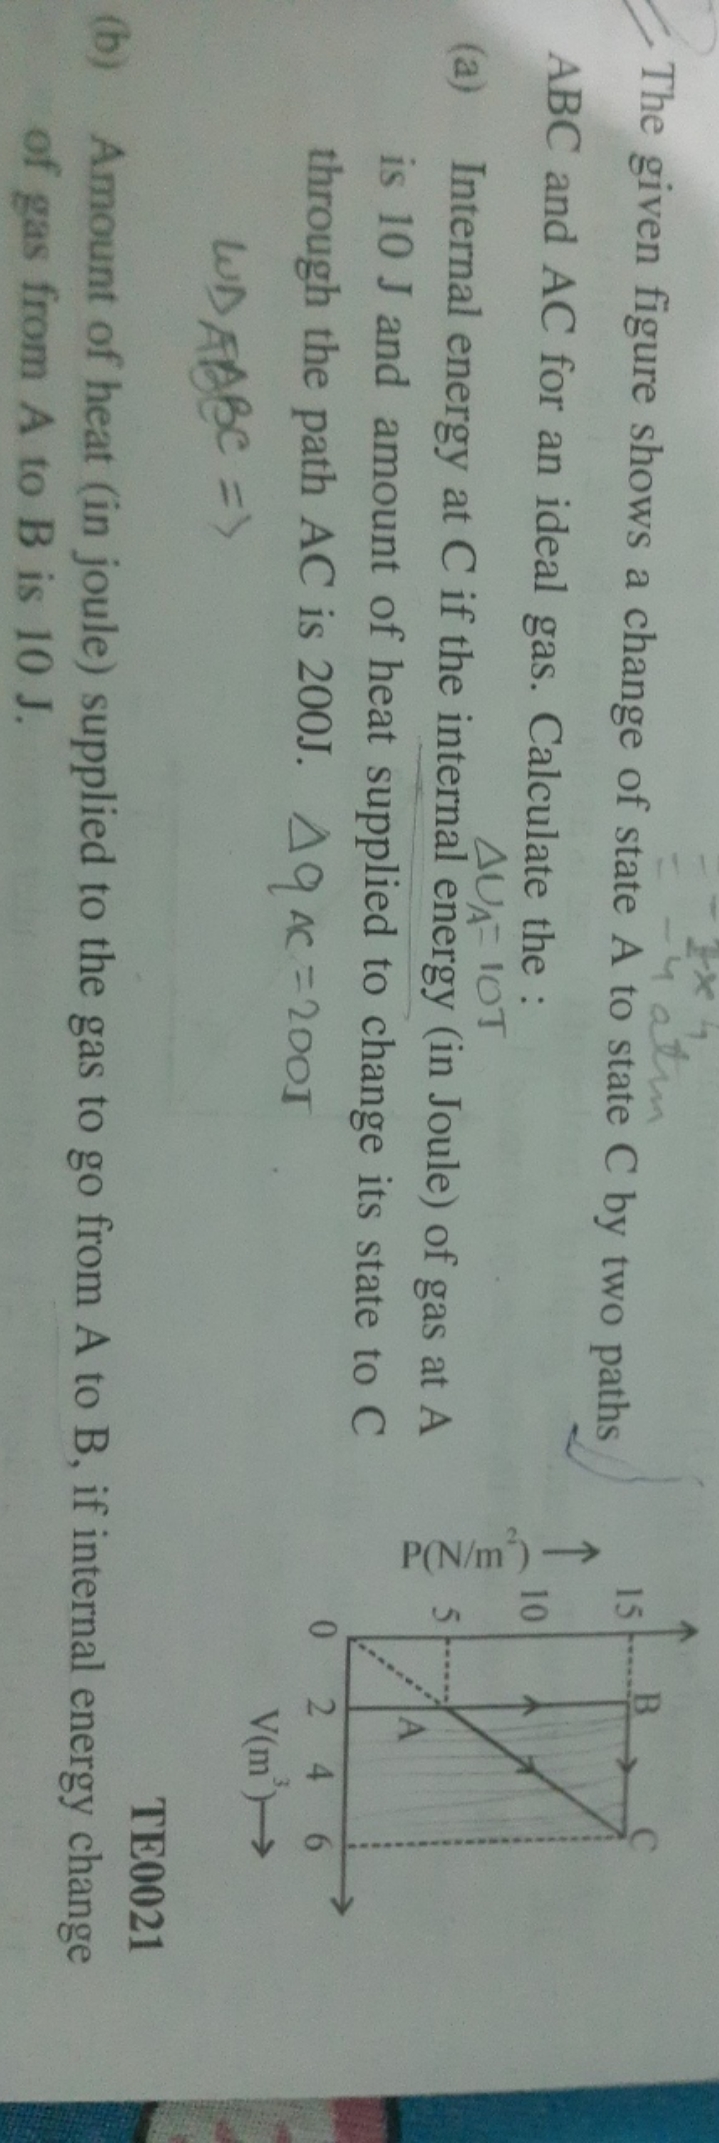 = - 1 x 4
= - 4 atm
The given figure shows a change of state A to state C by two paths
ABC and AC for an ideal gas. Calculate the :
ΔUA = 10J
(a) Internal energy at C if the internal energy (in Joule) of gas at A
is 10 J and amount of heat supplied to change its state to C
through the path AC is 200J. Δq AC = 200J
WD ABC =>
P(N/m²) →
15
10
5
0
B
C
A
2 4 6
V(m³) →
TE0021
(b) Amount of heat (in joule) supplied to the gas to go from A to B, if internal energy change
of gas from A to B is 10 J.